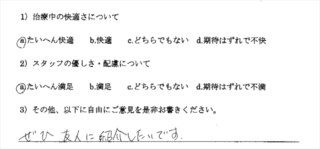 1）治療中の快適さについて
ⓐたいへん快適　b.快適　c.どちらでもない　d.期待はずれで不快
2）スタッフの優しさ・配慮について
ⓐたいへん満足　b.満足　c.どちらでもない　d.期待はずれで不満
3）その他、以下に自由にご意見を是非お書きください。
ぜひ 友人に紹介したいです.